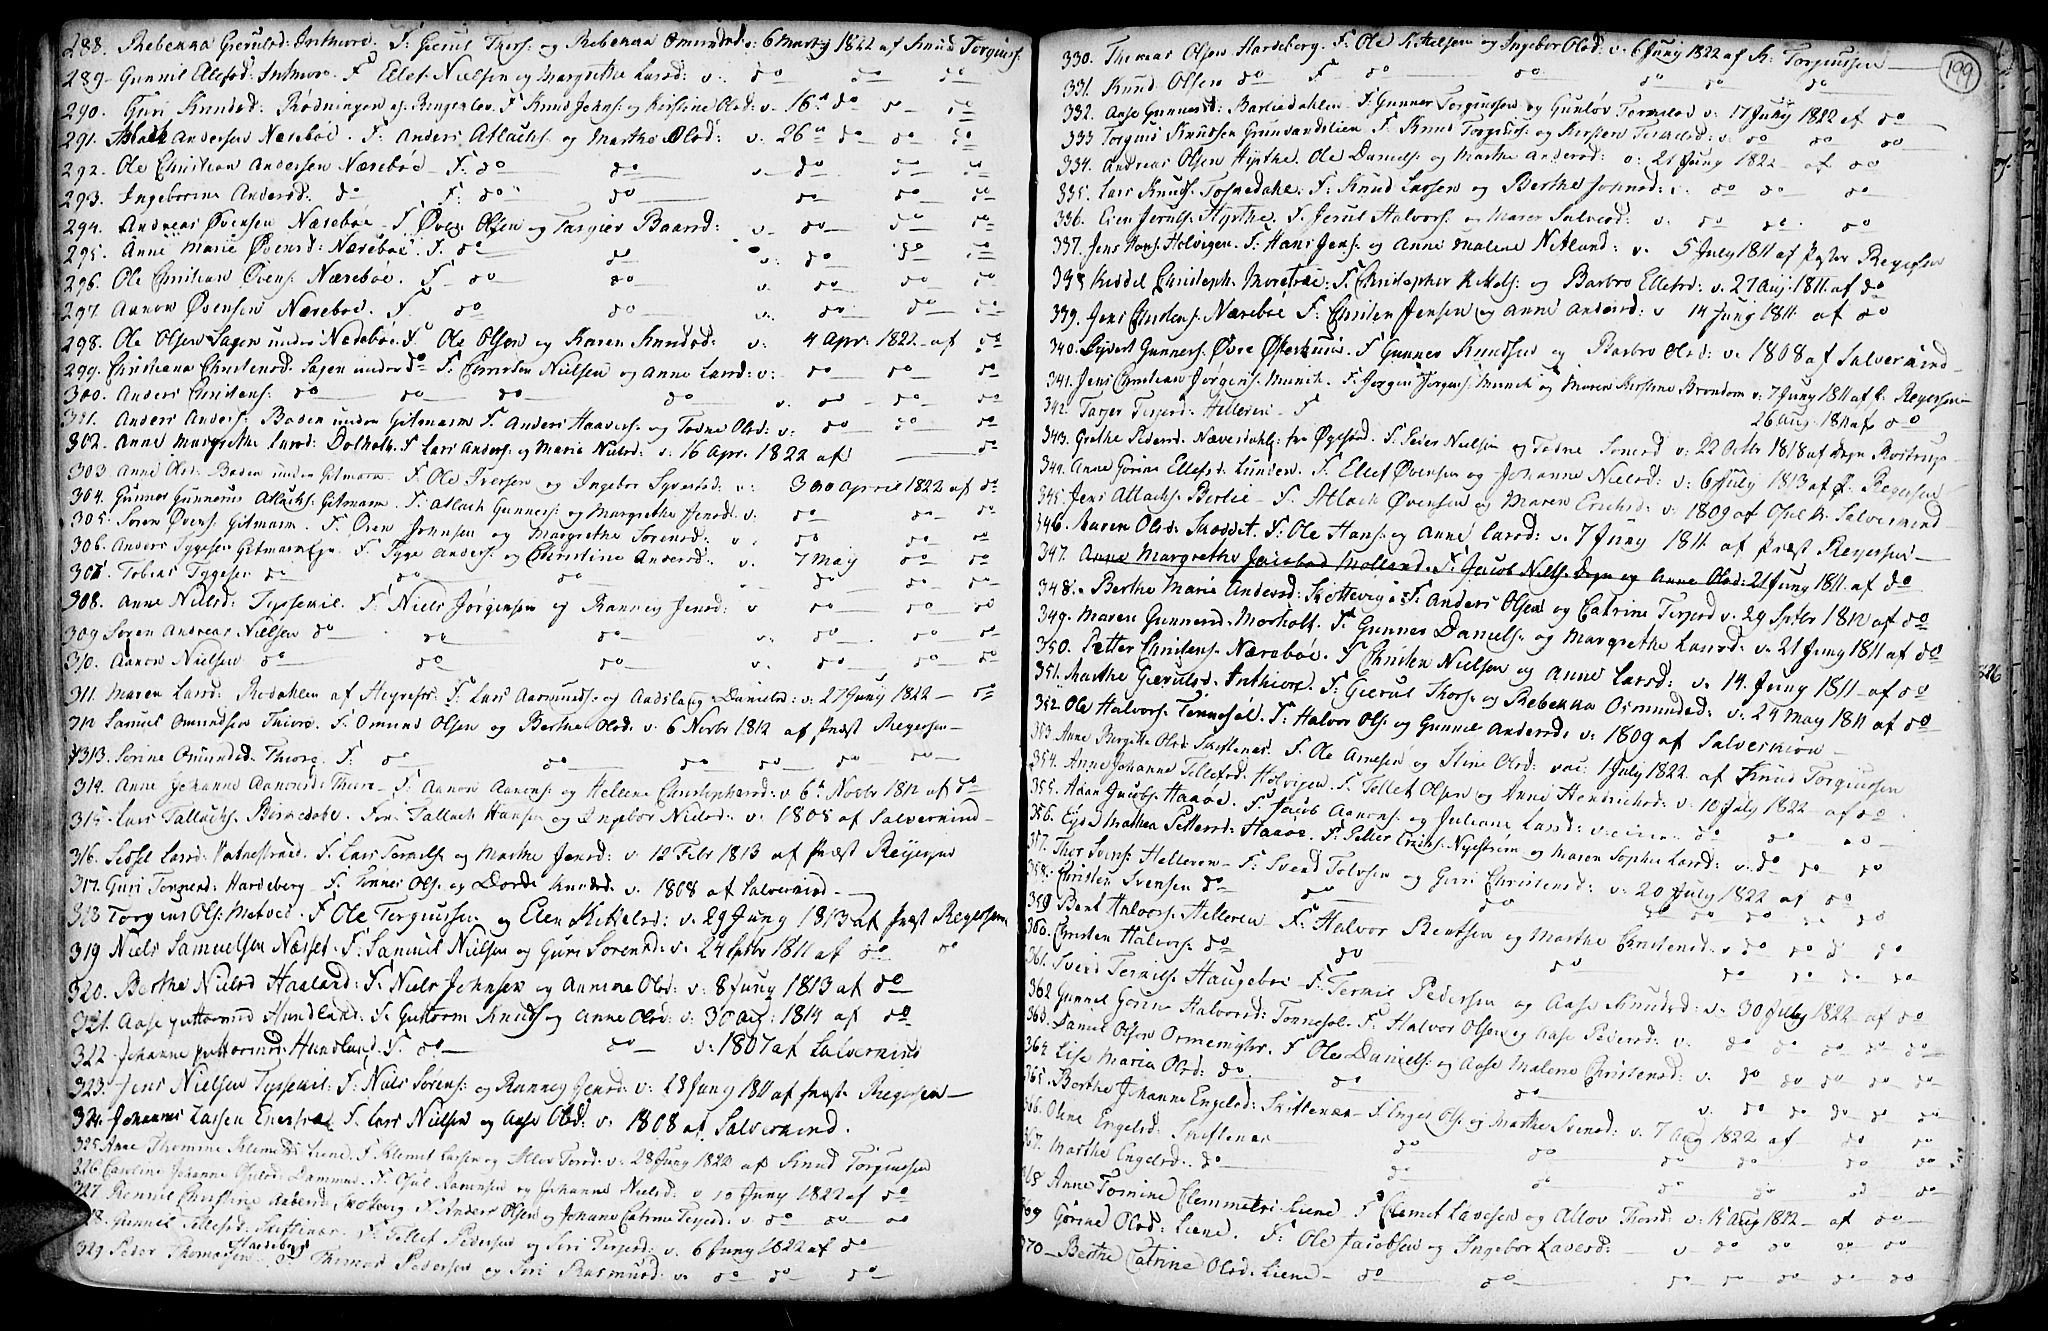 288. Rebekka Gierulsd: Inthiore. F: Gierul Thors: og Rebekka Omundsd v: 6 Marty 1822 af Knud Torgiuss:
289. Gunnil Ellefsd: Inthiore. F Ellef Nielsen og Margrethe Larsd: v: do do do
290. Guri Knudsd: Rødningen F Knud Johns: og Kirstine Olsd: v. 16 do do do
291. Atlack Andersen Næseboe. F: Anders Atlacks: og Marthe Olsd: v: 26 do do do
292. Ole Christian Andersen Næseboe F: do do v. do do do
293. Ingeborine Andersd: do F: do do do do do
294. Andreas Øvensen Næseboe. F Øven Olsen og Targier Baarsd: v. do do do
295. Anne Marie Øvensd: Næseboe F. do do v. do do do
296. Ole Christian Øvens: Næseboe. F do do v. do do do
297. Aanon Øvensen Næseboe. F. do do v. do do do
298. Ole Olsen Sagen under Næseboe. F Ole Olsen og Karen Knudsd: v: 4 Apr: 1822 af do
299. Christiana Christensd. Sagen under do F. Christen Nielsen og Anne Larsd: v: do do do
300. Anders Christens: do do do do v. do do do
301. Anders Anders: Baden under Gitmarn F. Anders Haavors: og Todne Olsd: v: do do do
302. Anne Margrethe Larsd: Dolholt. F Lars Anders: og Marie Nielsd: v. 16 Apr. 1822 af do
303. Anne Olsd: Baden under Gitmarn F. Ole Iversen og Ingebor Syversd: v: 30 April 1822 af do
304. Gunner Gunnerius Atlacks: Gitmarn. F. Atlack Gunners: og Margrethe Jensd: v: do do do
305. Søren Øvens: Gitmarn. F. Øven Johnsen og Margrethe Sørensd: v. do do do
306. Anders Tygesen Gitmarn F. Tyge Anders: og Christine Andersd: v. 7 May do do
307. Tobias Tygesen do do do do do do
308. Anne Nielsd: Tyssekil. F. Niels Jørgensen og Ranney Jensd: v do do do
309 Søren Andreas Nielsen do do do v. do do do
310. Aanon Nielsen do do do v. do do do
311. Maren Larsd: Rødahlen af Heyrefss. F: Lars Aasmunds: og Aadslaug Danielsd: v. 27 Juny 1822 do
312 Samuel Omundsen Thiore. F. Omund Olsen og Berthe Olsd. v: 6 Novbr 1812 af Præst Reyersen
313. Sørine Omundsd. Thiore. F: do do do do do do
314. Anne Johanne Aanonsd: Thiore F: Aanon Aanons: og Hellene Christophersd: v 6t Novbr 1812 af do
315. Lars Tallacks. Birkedahl. For: Tallack Hansen og Ingebor Nielsd: v: 1805 af Salvernind
316. Sessel Larsd: Vatnestrand. F. Lars Terkils: og Marthe Jensd: v. 12 Febr 1813 af Præst Reyersen
317. Guri Tonnesd: Hardeberg F. Tønnes Ols: og Dorde Knudsd. v. 1808 af Salvernind
318 Torgius Ols: Metved. F Ole Torgiussen og Elen Kittelsd: v. 29 Juny 1813 af Præst Reyersen
319 Niels Samuelsen Næsset. F. Samuel Nielsen og Guri Sørensd. v. 24 Sptbr 1811 af do do
320. Berthe Nielsd Haaland: F. Niels Johnsen og Annine Olsd: v: 8 Juny 1813 af do
321. Aase Guttormsd Hundland: F. Guttorm Knuds og Anne Olsd: v: 30 Aug: 1814 af do
322. Johanne Guttormsd: Hundland F. do do v: 1807 af Salvernind
323. Jens Nielsen Tyssekil: F. Niels Sørens: og Ranney Jensd: v: 23 Juny 1811 af Præst Reyersen
324. Johannes Larsen Enestræ F. Lars Nielsen og Aase Olsd: v: 1808 af Salvernind.
325. Anne Thomine Klemetsd Liene. F Klemet Larsen og Allov Torsd. v: 28 Juny 1822 af Knud Torgiussen
326 Caroline Johanne Osulsd: Dammen F. Osul Aanonsen og Johanne Nielsd. v 10 Juny 1822 af do
327. Pernille Christine Andersd: Skottevig F Anders Olsen og Johane Catrine Terjesd: v. do do do
328. Gunnil Tellefsd: Skiftenes F: Tellef Pedersen og Siri Terjesd: v. 6 Juny 1822 af do
329 Peder Thomassen Hardeberg do Thomas Pedersen og Siri Rasmusd. v. do do do
330. Thomas Olsen Hardeberg. F: Ole Kittelsen og Ingebor Olsd: v: 6 Juny 1822 af K: Torgiussen
331. Knud Olsen do F do do do do do
332. Aase Gunnersd: Barliedahlen F. Gunner Torgiussen og Gunløv Terkelsd v: 17 Juny 1822 af do
333 Torgius Knudsen Grunvandslien F. Knud Torgius: og Kirsten Terkelsd: v do do do
334. Andreas Olsen Hyrthe. Ole Daniels: og Marthe Andersd: v: 21 Juny 1822 af do
335. Lars Knuds: Tofsedahl: F: Knud Larsen og Berthe Johnsd: v. do do do
336. Even Jeruls: Hyrthe. F. Jerul Halvors: og Maren Salvesd: v. do do do
337. Jens Hans: Holvigen. F: Hans Jens: og Anne Malene Netlund: v. 5 July 1811 af Præsten Reyersen
338 Keddel Christoph: Moretræ: F. Christopher Kittels: og Barbro Ellefsd: v. 27 Aug. 1811. af do
339. Jens Christens: Næseboe F: Christen Jensen og Anne Andersd: v 14 Juny 1811 af do
340. Syvert Gunners: Øvre Østerhuus. F Gunner Knudsen og Barbro Olsd: v. 1808 af Salvernind
341. Jens Christian Jørgens: Munick. F. Jørgen Jørgens: Munick og Maren Kirstine Brondum v. 7 Juny 1811 af P. Reyersen
342. Tarjer Terjesd: Helleren F 26 Aug. 1811 af do
343. Grethe Pedersd: Næversdahl: fra Øyestad. F. Peder Nielsen og Todne Tonesd v: 22 Octbr 1818 af Degn
344. Anne Gorine Ellefsd. Lunden. F. Ellef Øvensen og Johanne Nielsd: v: 6 July 1813 af P. Reyersen
345. Jens Atlacks. Berlie F. Atlack Øvensen og Maren Erichsd: v: 1809 af Salvernind
346. Karen Olsd: Skaddet. F: Ole Hans: og Anne Larsd: v. 7 Juny 1811 af Præst Reyersen
347. Anne Margrethe Jacobsd Molland. F Jacob Niels: Degn og Anne Olsd: 21 Juny 1811. af do
348. Berthe Marie Andersd: Skottevig F. Anders Olsen og Catrine Terjesd v. 29 Sptbr 1812 af do
349. Maren Gunnersd Morholt. F. Gunner Daniels: og Margrethe Larsd: v. do
350. Petter Christens: Næseboe. F Christen Nielsen og Anne Larsd: v. 21 Juny 1811 af do
351. Marthe Gierulsd: Inthiore. F: Gierul Thors: og Rebekka Osmundsd: v. 14. Juny 1811 af do
352. Ole Halvors: Tønnesøl. F: Halvor Ols: og Gunnil Andersd: v: 24 May 1811 af do
353 Anne Birgitte Olsd Skiftenes. F. Ole Arnesen og Stine Olsd: v: 1809 af Salvernion
354. Anne Johanne Tellefsd: Holvigen F. Tellef Olsen og Anne Hendrichsd: v: 1 July 1822 af Knud Torgiussen
355. Adan Jacobs: Haaøe. F Jacob Aanons: og Juliane Larsd: v. 10 July 1822 af do
356. Eyde Mathea Pettersd: Haaøe. F: Petter Erichs: Nystrøm og Maren Sophie Larsd: v. do do do
357. Thor Svens: Helleren F: Svend Tolvsen og Guri Christensd: v. do do do
358. Christen Svensen do do do v: 20 July 1822 af do
359 Bent Halvors: Helleren F. Halvor Bentsen og Marthe Christensd. v do do do do
360. Christen Halvors: do do do do do do
361. Svend Terkils: Haugeboe F. Terkil Pedersen og Aase Knudsd: v. 30 July 1822 af do
362 Gunnil Gorine Halvorsd: Tønnesøl F. Halvor Olsen og Aase Pedersd: v. do do do do
363. Daniel Olsen Ormemyhr. F Ole Daniels: og Aase Malene Christensd: v. do do do do
364 Lise Maria Olsd: do do do do do do do
365. Berthe Johanne Engelsd: Skiftenæs F. Engel Ols: og Marthe Svensd: v. 7 Aug 1822 af do do
366. Oline Engelsd. Skiftenæs do do do do do
367. Marthe Engelsd. do do do do do do
368 Anne Tomine Clemmetsd Liene F Clemet Lavesen og Allov Thorsd: v: 15 Aug 1822 af do
369 Gorine Olsd: Liene. F. Ole Jacobsen og Ingebor Lavesd: v do do do do
370 Berthe Catrine Olsd: Liene do do do do do do
199